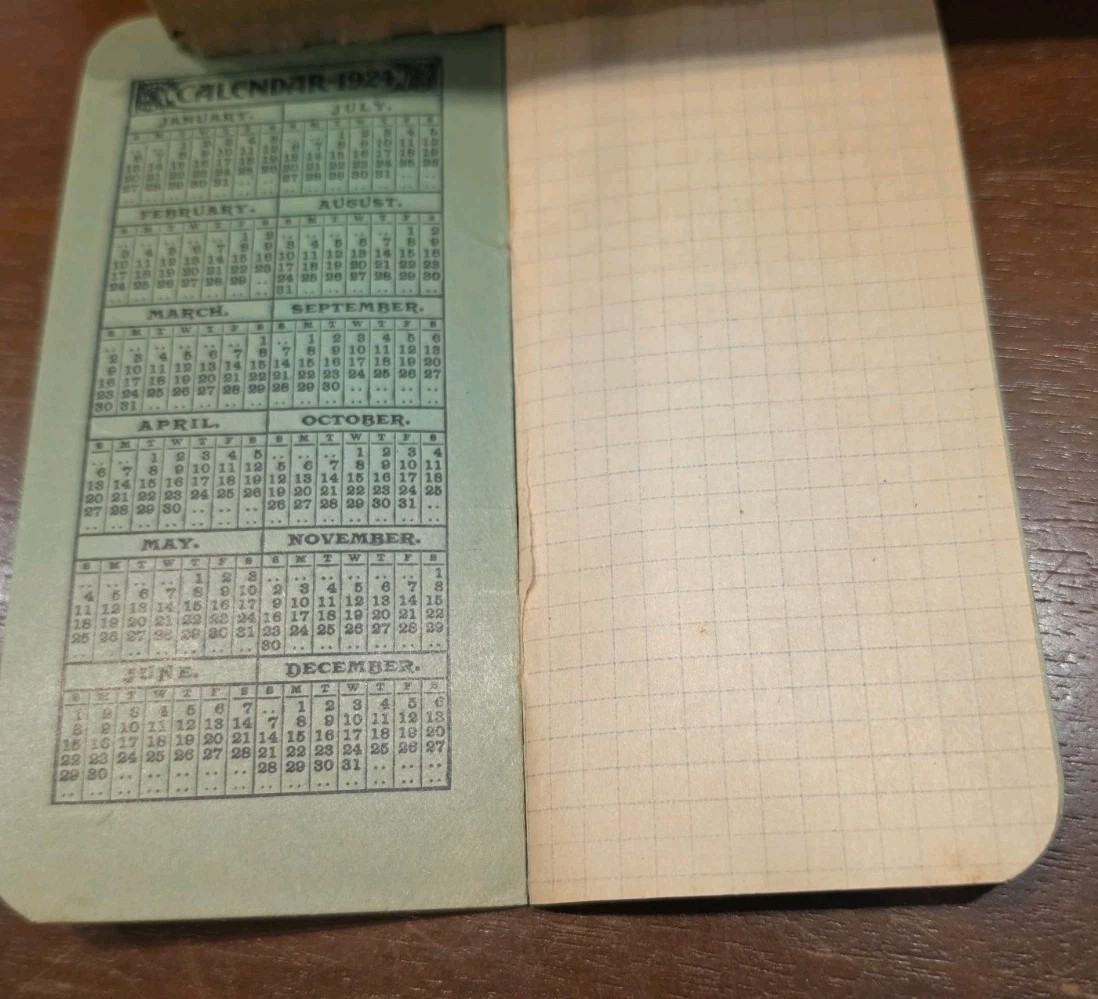 CALENDAR-1924
JANUARY.
S M T W T F S
.. .. 1 2 3 4 5
6 7 8 9 10 11 12
13 14 15 16 17 18 19
20 21 22 23 24 25 26
27 28 29 30 31 .. ..
JULY.
S M T W T F S
.. .. 1 2 3 4 5
6 7 8 9 10 11 12
13 14 15 16 17 18 19
20 21 22 23 24 25 26
27 28 29 30 31 .. ..
FEBRUARY.
S M T W T F S
.. .. .. .. .. 1 2
3 4 5 6 7 8 9
10 11 12 13 14 15 16
17 18 19 20 21 22 23
24 25 26 27 28 29 ..
AUGUST.
S M T W T F S
.. .. .. .. .. 1 2
3 4 5 6 7 8 9
10 11 12 13 14 15 16
17 18 19 20 21 22 23
24 25 26 27 28 29 30
31 .. .. .. .. .. ..
MARCH.
S M T W T F S
.. .. .. .. .. .. 1
2 3 4 5 6 7 8
9 10 11 12 13 14 15
16 17 18 19 20 21 22
23 24 25 26 27 28 29
30 31 .. .. .. .. ..
SEPTEMBER.
S M T W T F S
.. 1 2 3 4 5 6
7 8 9 10 11 12 13
14 15 16 17 18 19 20
21 22 23 24 25 26 27
28 29 30 .. .. .. ..
.. .. .. .. .. .. ..
APRIL.
S M T W T F S
.. .. 1 2 3 4 5
6 7 8 9 10 11 12
13 14 15 16 17 18 19
20 21 22 23 24 25 26
27 28 29 30 .. .. ..
.. .. .. .. .. .. ..
OCTOBER.
S M T W T F S
.. .. .. 1 2 3 4
5 6 7 8 9 10 11
12 13 14 15 16 17 18
19 20 21 22 23 24 25
26 27 28 29 30 31 ..
.. .. .. .. .. .. ..
MAY.
S M T W T F S
.. .. .. .. 1 2 3
4 5 6 7 8 9 10
11 12 13 14 15 16 17
18 19 20 21 22 23 24
25 26 27 28 29 30 31
.. .. .. .. .. .. ..
NOVEMBER.
S M T W T F S
.. .. .. .. .. .. 1
2 3 4 5 6 7 8
9 10 11 12 13 14 15
16 17 18 19 20 21 22
23 24 25 26 27 28 29
30 .. .. .. .. .. ..
JUNE.
S M T W T F S
1 2 3 4 5 6 7
8 9 10 11 12 13 14
15 16 17 18 19 20 21
22 23 24 25 26 27 28
29 30 .. .. .. .. ..
.. .. .. .. .. .. ..
DECEMBER.
S M T W T F S
.. 1 2 3 4 5 6
7 8 9 10 11 12 13
14 15 16 17 18 19 20
21 22 23 24 25 26 27
28 29 30 31 .. .. ..
.. .. .. .. .. .. ..